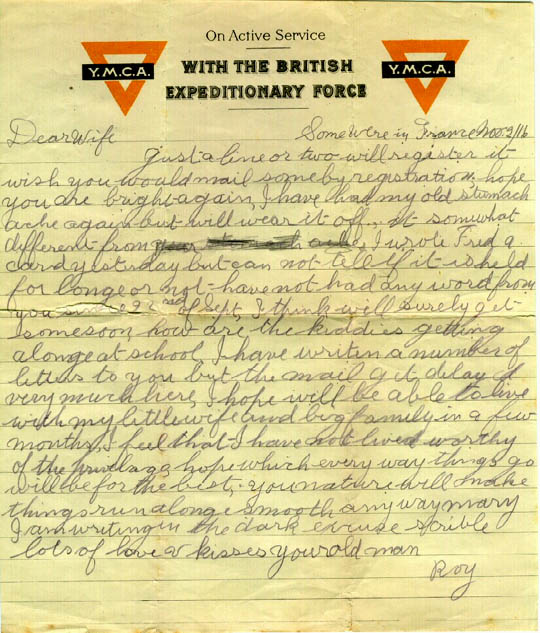 On Active Service
WITH THE BRITISH
EXPEDITIONARY FORCE
Y.M.C.A.
Y.M.C.A.
Somewere in France Nov 2/16
Dear Wife
Just a line or two will register it
wish you would mail some by registration, hope
you are bright again, I have had my old stumach
ache again but will wear it off. it somwhat
different from your I wrote Fred a
card yesturday but can not tell if it is held
for longe or not have not had any word from
you since 22nd of Sept, I think will surely get
some soon, how are the kiddies getting
alonge at school, I have writen a number of
letters to you but the mail get delay d
very much here, I hope will be able to live
with my little wife and big family in a few
months, I feel that I have not lived worthy
of the hope which every way things go
will be for the best, you nature will make
things run alonge smooth any way mary
I am writing in the dark excuse scrible
lots of love & kisses your old man
Roy